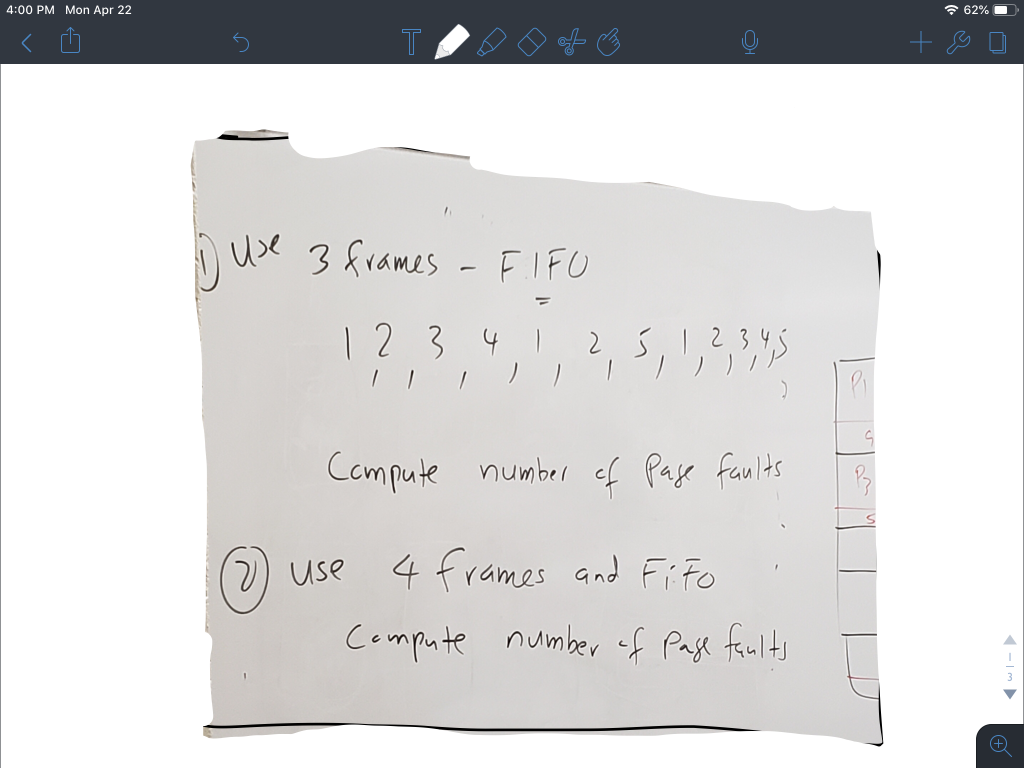 4:00 PM Mon Apr 22
62%
T
1 Use 3 frames - FIFO
1, 2, 3, 4, 1, 2, 5, 1, 2, 3, 4, 5
Compute number of Page faults
2 Use 4 frames and FiFo
Compute number of Page faults
P1
P3
1
3